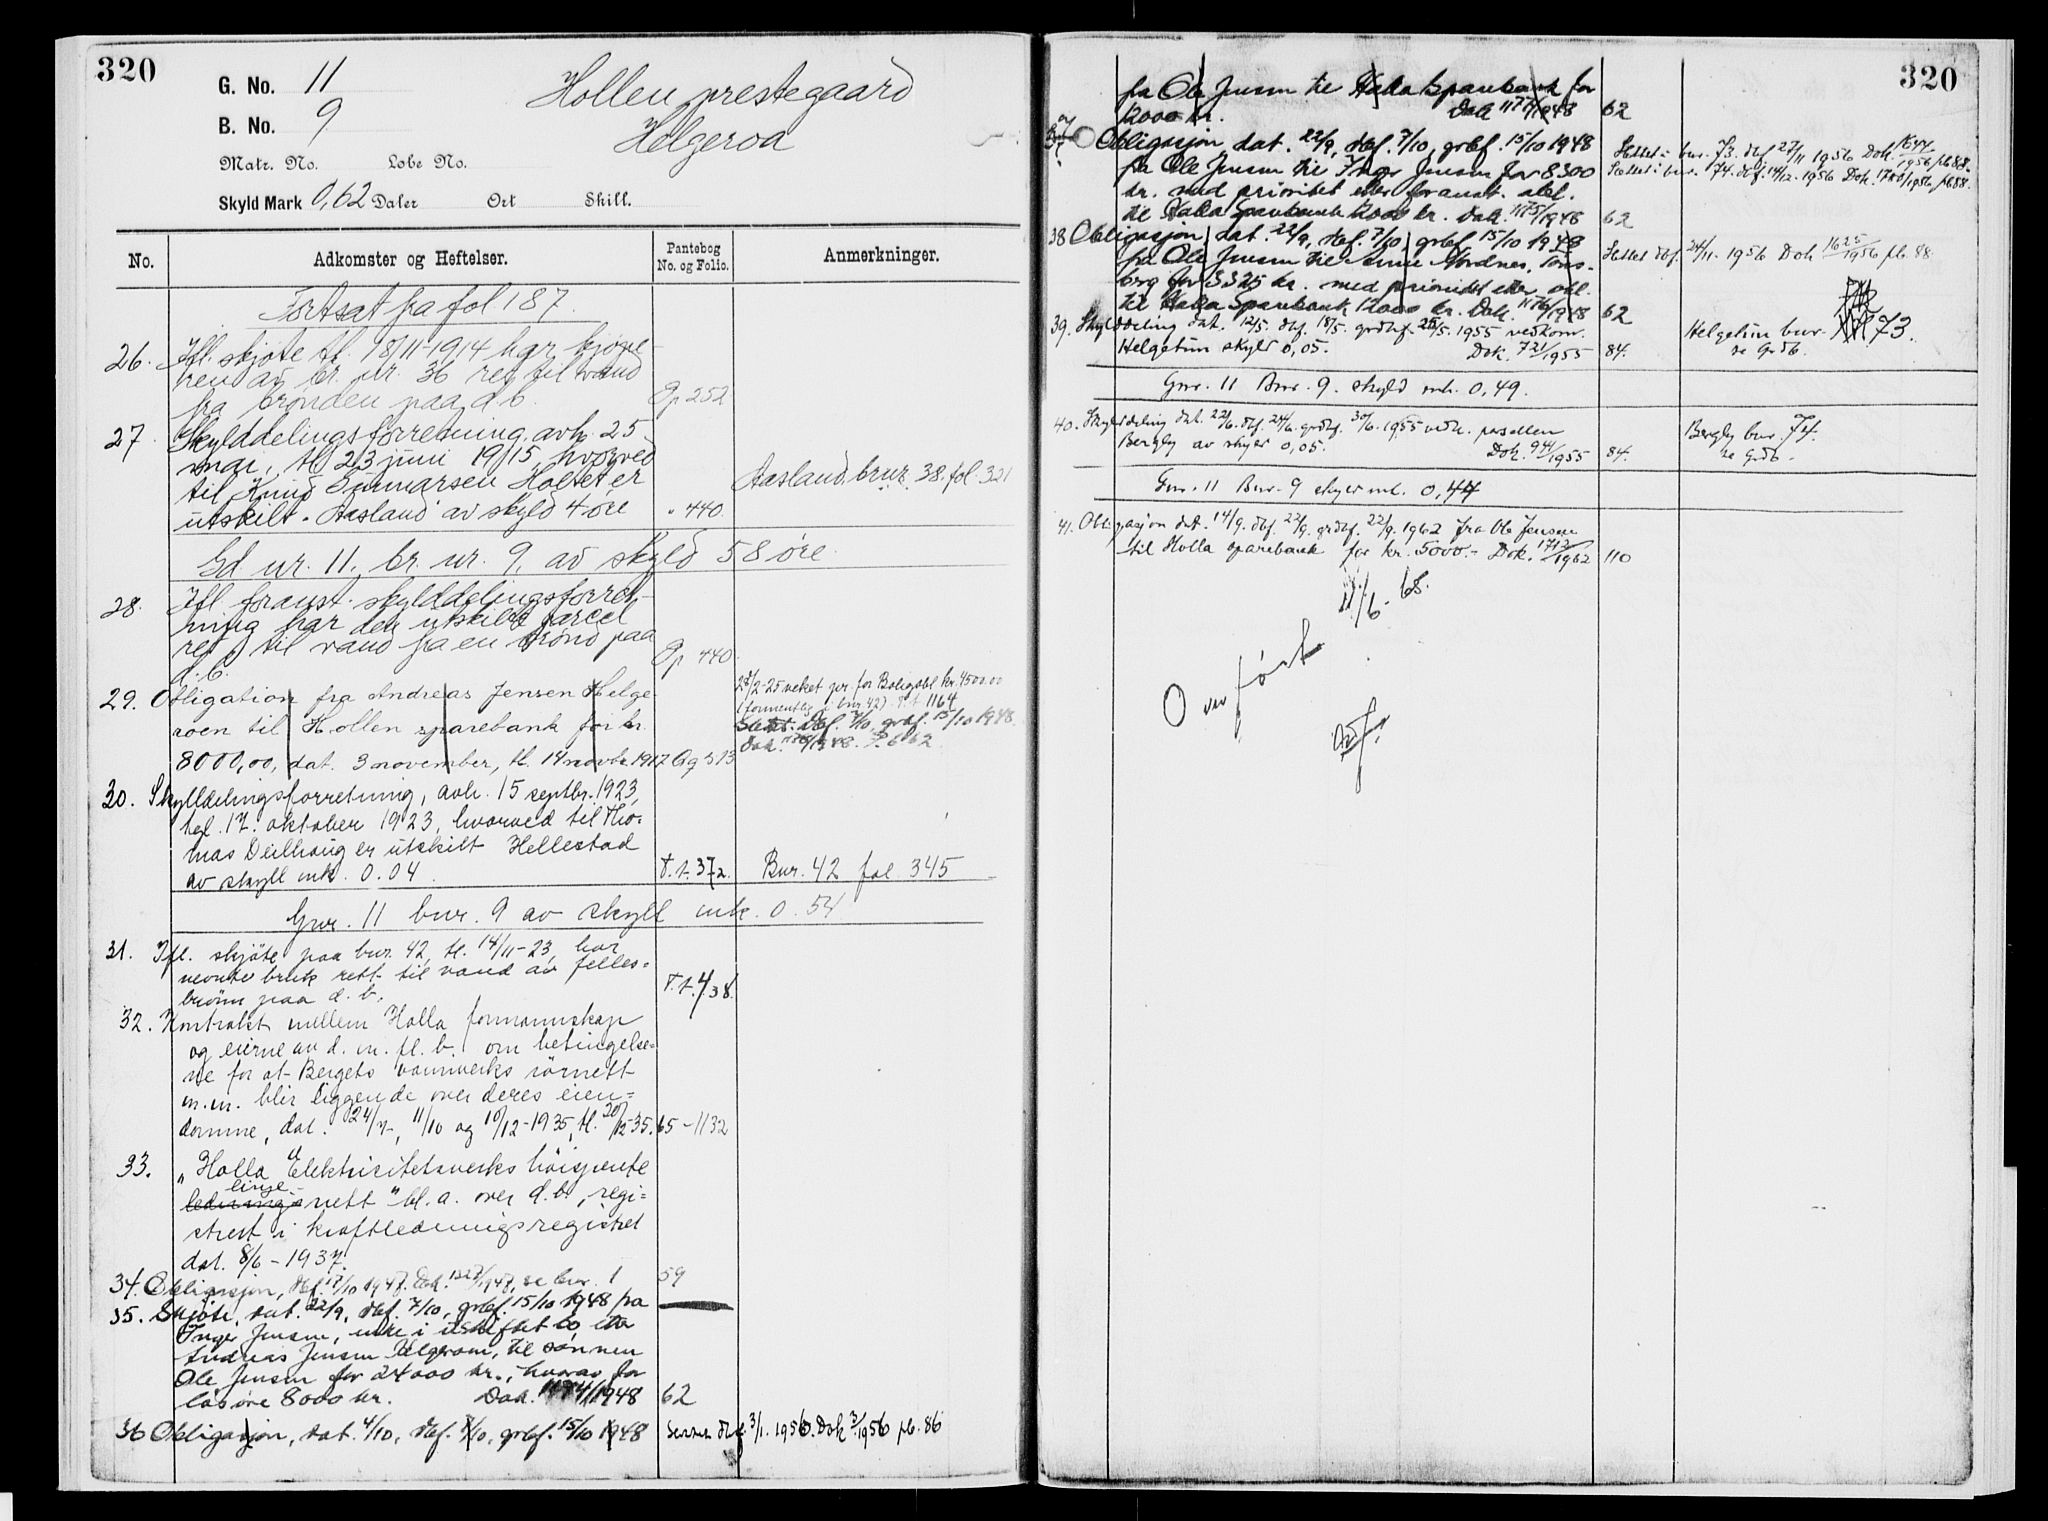 320
G. No. 11
B. No. 9
Hollen prestegaard
Helgeroa
Matr. No. Løbe No.
Skyld Mark 0,62 Daler Ort Skill.
No. Adkomster og Heftelser. Pantebog No. og Folio. Anmerkninger.
Fortsat fra fol. 187.
26. Ifl. skjøte tl. 18/11-1914 har kjøpe-
ren av br. nr. 36 ret til vand
fra brønden paa d. b. Qp 252
27. Skylddelingsforretning, avh. 25
mai, tl. 23 juni 1915, hvorved
til Knud Holtet er
utskilt "Aasland" av skyld 4 øre " 440 Aasland, brnr. 38. fol. 321
Gd nr. 11, br. nr. 9, av skyld 58 øre.
28. Ifl. foranst. skylddelingsforret-
ning har den utskilte parcel
ret til vand fra en brønd paa
d. b. Qp 440
29. Obligation fra Andreas Jensen Helge-
roen til Hollen sparebank for kr.
8000,00, dat. 3 november, tl. 14 novbr. 1917 Qq 373
28/2-25 veket pr. for Boligobl. kr. 4500.00
(formentlig i bnr 42) T.t. 1164
Slettet. dbf. 7/10 grbf. 15/10 1948.
30. Skylldelingsforretning, avh. 15 septbr. 1923,
tgl. 17. oktober 1923, hvorved til Tho-
mas Deilhaug er utskilt Hellestad
av skyll mk. 0.04. T.t. 372. Bnr. 42 fol. 345
Gnr. 11 bnr. 9 av skyll mk. 0.54
31. Ifl. skjöte paa bnr. 42, tl. 14/11-23, har
nevnte bruk rett til vand av felles-
brönn paa d. b. T.t. 438.
32. Kontrakt mellem Holla formannskap
og eierne av d. m. fl. b. om betingelse-
ne for at Bergets vannverks rörnett
m.m. blir liggende over deres eien-
domme, dat. 24/7-, 11/10 og 10/12-1935, tl. 20/12-35. 65-1132
33. "Holla Elektrisitetsverks höispente
linje-
lednings nett" bl. a. over d. b., regi-
strert i kraftledningsregistret
dat. 8/6-1937.
34. Obligasjon, dbf. 17/10 1947. Dok. 1327/1947, se bnr. 1 59
35. Skjöte, dat. 22/9, dbf. 7/10, grbf. 15/10 1948 fra
Inger Jensen, enke i uskiftet bo etter
Andreas Jensen Helgeroen, til sønnen
Ole Jensen for 24000 kr., hvorav for
lösöre 8000 kr. Dok. 1174/1948 62
36 Obligasjon, dat. 4/10, dbf. 7/10, grbf. 15/10 1948 Slettet dbf. 3/1. 1956. Dok 3/1956 pb. 86
320
fra Ole Jensen til Halla Sparebank for
12000 kr. Dok 1177/1948 62
37 Obligasjon, dat. 22/9, dbf. 7/10, grbf. 15/10 1948
fra Ole Jensen til Thor Jensen for 8300
kr. med prioritet etter foranst. obl.
til Halla Sparebank 12000 kr. Dok. 1175/1948 62
Slettet i bnr. 73. dbf 27/11 1956 Dok. 1644/1956 pb 88.
Slettet i bnr. 74. dbf. 14/12. 1956 Dok. /1956 pb 88.
38 Obligasjon, dat. 22/9, dbf. 7/10, grbf. 15/10 1948
fra Ole Jensen til Nordnes, Töns-
berg for 3325 kr. med prioritet etter obl.
til Halla Sparebank 12000 kr. Dok. 1176/1948 62
Slettet dbf. 24/11. 1956 Dok 1625/1956 pb. 88
39. Skylddeling dat. 12/5. dbf. 18/5. grdbf. 25/5. 1955 vedkom.
Helgetun skyld 0,05. Dok. 721/1955 84.
Helgetun bnr. 73.
se Grdb.
Gnr. 11 Bnr. 9. skyld mk. 0,49.
40. Skylddeling dat. 22/6. dbf. 24/6. grdbf. 30/6. 1955 vedk. parsellen
Bergly av skyld 0,05. Dok. 941/1955 84.
Bergly bnr. 74.
se Grdb.
Gnr. 11 Bnr. 9 skyld mk. 0,44
41. Obligasjon dat. 14/9. dbf. 22/9. grdbf. 22/9. 1962 fra Ole Jensen
til Holla sparebank for kr. 5000.- Dok. 1712/1962 110
Overført